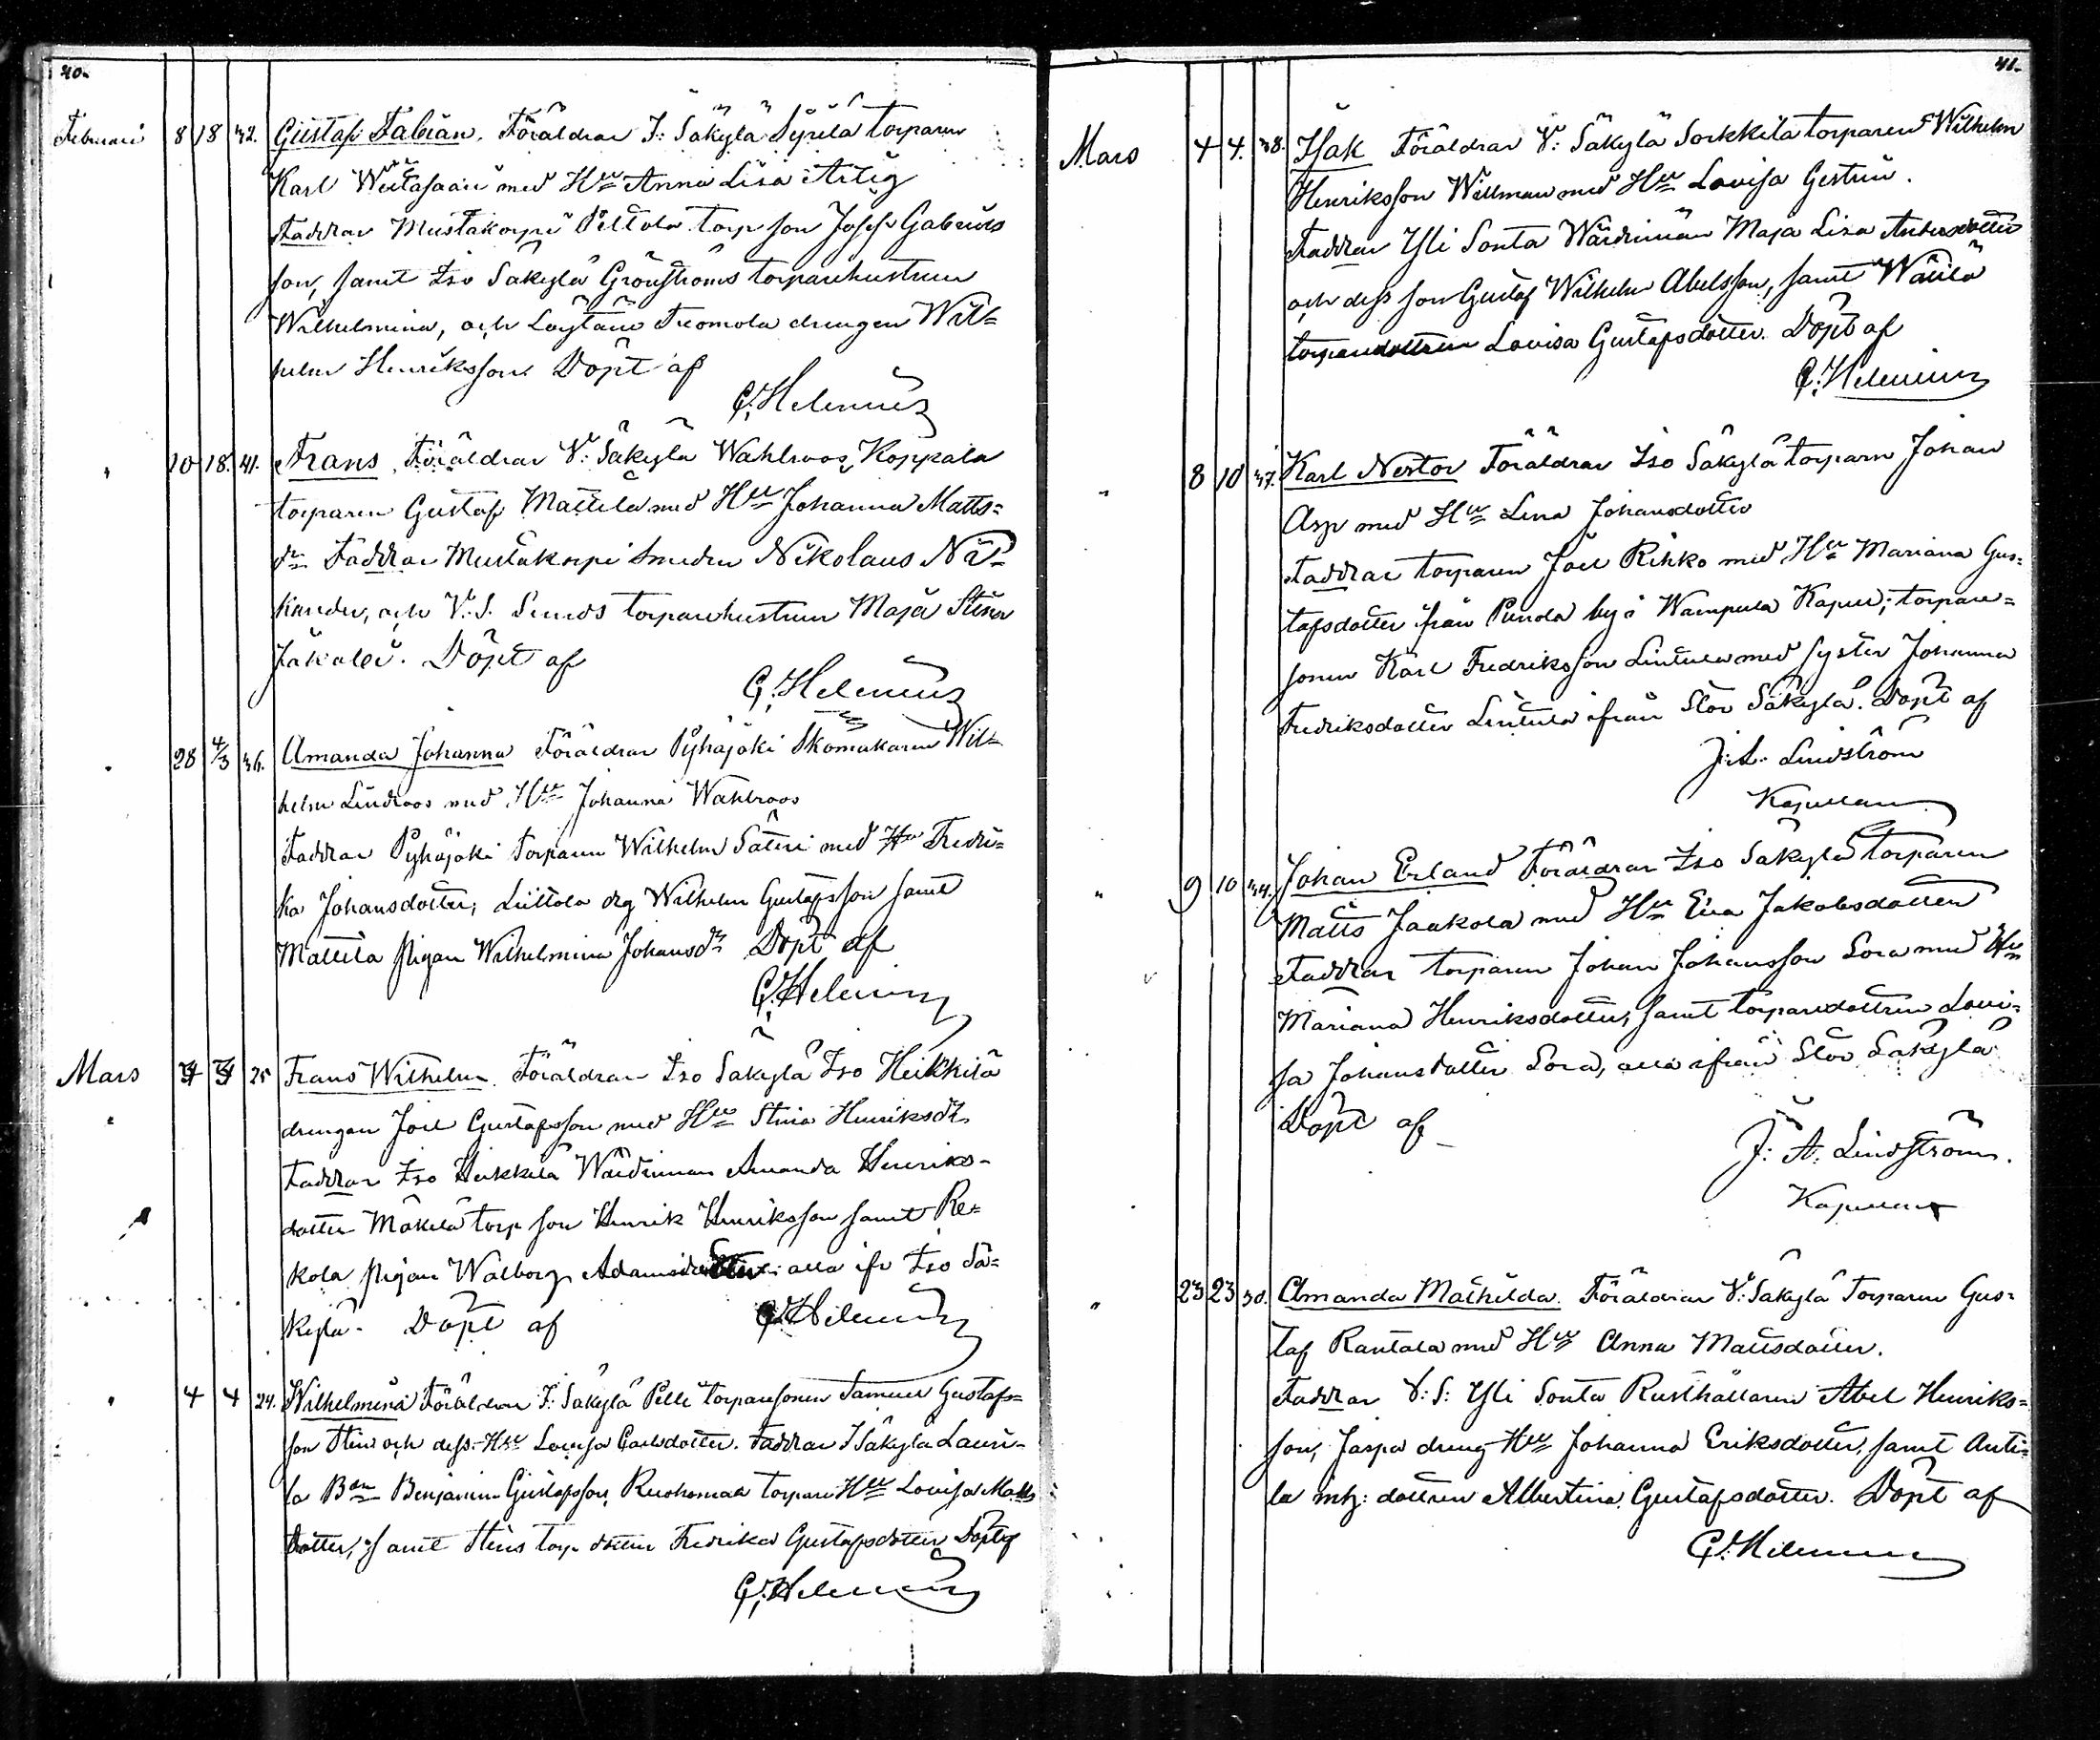 40.
Februari 8 18 32. Gustaf Fabian. Föräldrar I: Säkylä Syrilä torparen
Karl med Hu Anna Lisa Artig
Faddrar Mustakorpi Peltola torp son Josef Gabriels
son, samt Iso Säkylä Grönströms torparehustrun
Wilhelmina, och Löytäne Tuomola drengen Wil=
helm Henriksson. Döpt af
G. Helenius
" 10 18. 41. Frans. Föräldrar V: Säkylä Wahlroos, Koppala
torparen Gustaf Mattila med Hu Johanna Matts=
dr Faddrar Mustakorpi Smeden Nikolaus Nä
kander, och V. S. Sunds torparehustrun Maja Stina
Jakolei. Döpt af
G. Helenius
" 28 4/3 36. Amanda Johanna Föräldrar Pyhäjoki Skomakaren Wil=
helm Lindroos med Hu Johanna Wahlroos
Faddrar Pyhäjoki Torparen Wilhelm Säteri med Hu Fredri=
ka Johansdotter; Liittola drg Wilhelm Gustafsson samt
Mattila pigan Wilhelmina Johansdr Döpt af
G. Helenius
Mars 25 Frans Wilhelm. Föräldrar Iso Säkylä Iso Heikkilä
drengen Joel Gustafsson med Hu Stina Henriksdr
Faddrar Iso Heikkilä Wärdinnan Amanda Henriks-
dotter Mäkelä torp son Henrik Henriksson samt Re=
kola pigan Walborg Adamsdotter: alla ifr Iso Sä=
kylä. Döpt af G. Helenius
" 4 4 24. Wilhelmina Föräldrar I: Säkylä Pelli torparesonen Samuel Gustafs=
son Stens och dess Hu Lovisa Carlsdotter. Faddrar I Säkylä Lauri-
la Bon Benjamin Gustafsson, Ruohomaa torpare Hu Lovisa Matts
dotter, samt Stens torp dottern Fredrika Gustafsdotter Döpt af
G. Helenius
41.
Mars 4 4. 38. Isak Föräldrar V: Säkylä Sorkkila torparen Wilhelm
Henriksson Willman med Hu Lovisa Gestrin.
Faddrar Yli Sonta Wärdinnan Maja Lisa Andersdotter
och dess son Gustaf Wilhelm Abelsson, samt Wälilä
torparedottren Lovisa Gustafsdotter. Döpt af
G. Helenius
" 8 10 37. Karl Nestor Föräldrar Iso Säkylä torparn Johan
Asp med Hu Lena Johansdotter
Faddrar torparen Joel Rihko med Hu Mariana Gus=
tafsdotter från Punola by i Wampula Kapell; torpare=
sonen Karl Fredriksson Lintula med syster Johanna
Fredriksdotter Lintula ifrån Stor Säkylä. Döpt af
J. A. Lindström
Kapellan
" 9 10 34. Johan Erland Föräldrar Iso Säkylä torparen
Matts Jaakola med Hu Eva Jakobsdotter
Faddrar torparen Johan Johansson Sora med Hu
Mariana Henriksdotter, samt torparedottren Lovi=
sa Johansdotter Sora, alla ifrån Stor Säkylä
Döpt af
J: A: Lindström.
Kapellan
" 23 23 30. Amanda Mathilda. Föräldrar V: Säkylä Torparen Gus=
taf Rantala med Hu Anna Mattsdotter.
Faddrar V: S: Yli Sonta Rusthållaren Abel Henriks=
son, Jaspa dreng Hu Johanna Eriksdotter, samt Anti=
la inh: dottren Albertina Gustafsdotter. Döpt af
G. Helenius